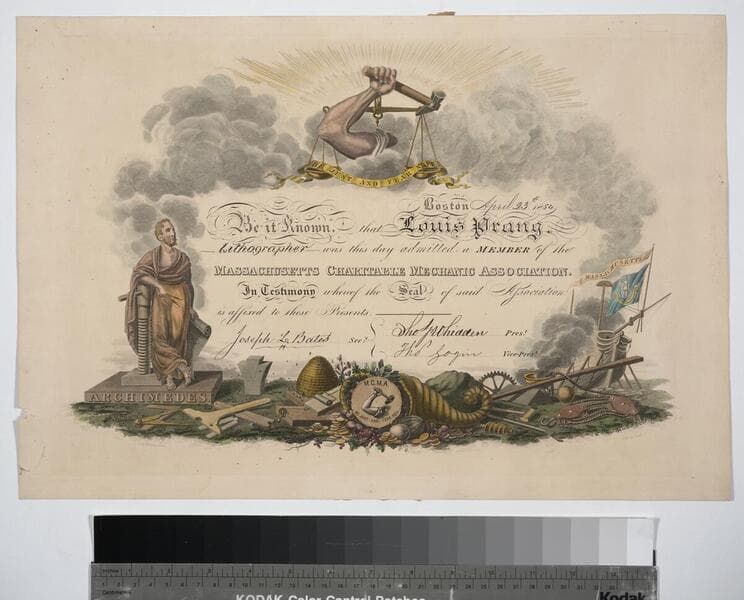 BE JUST AND FEAR NOT
Boston April 23d 1854
Be it Known. that Louis Prang.
Lithographer was this day admitted a MEMBER of the
MASSACHUSETTS CHARITABLE MECHANIC ASSOCIATION.
In Testimony whereof the Seal of said Association
is affixed to these Presents.
Joseph L. Bates Secy. Pres.
Vice-Pres.
MASSACHUSETTS
ARCHIMEDES
M.C.M.A.
BE JUST AND FEAR NOT
Inches 1 2 3 4 5 6 7 8 9 10 11 12 13
Centimetres
KODAK Color Control Patches Kodak